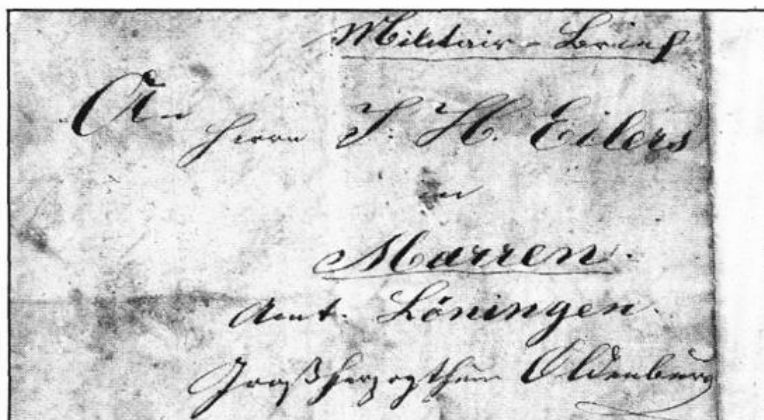 Militair-Brief
An
Herrn J. H. Eilers
in
Marren.
Amt. Löningen.
Großherzogthum Oldenburg